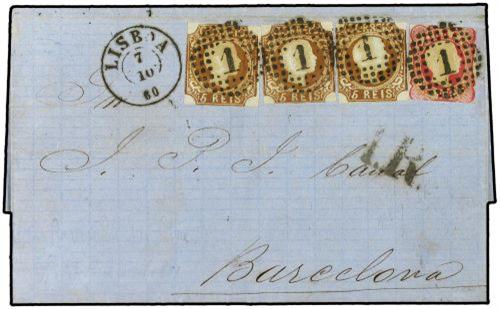 LISBOA
7
10
60
1 1 1 1
5 REIS 5 REIS 5 REIS
J. P. J.
Barcelona